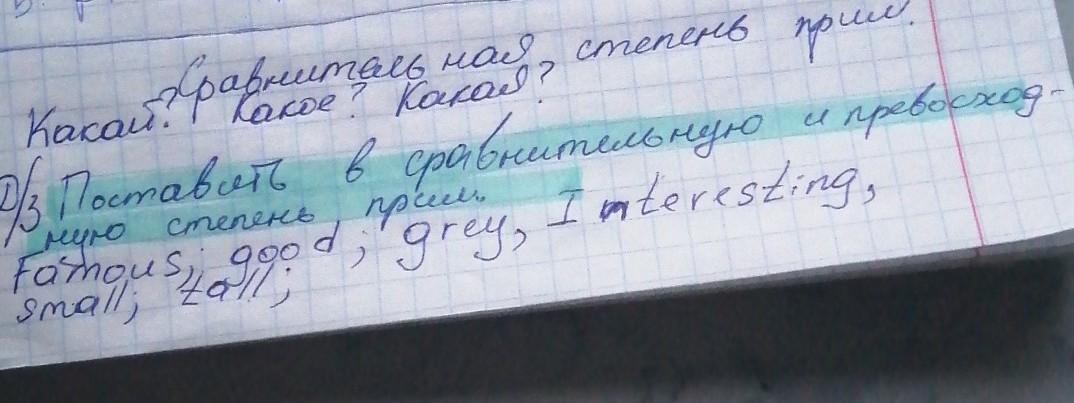 Сравнительная степень прил.
Какой? Какое? Какая?
D/з Поставить в сравнительную и превосход-
ную степень прил.
Famous; good; grey, Interesting,
small; tall;